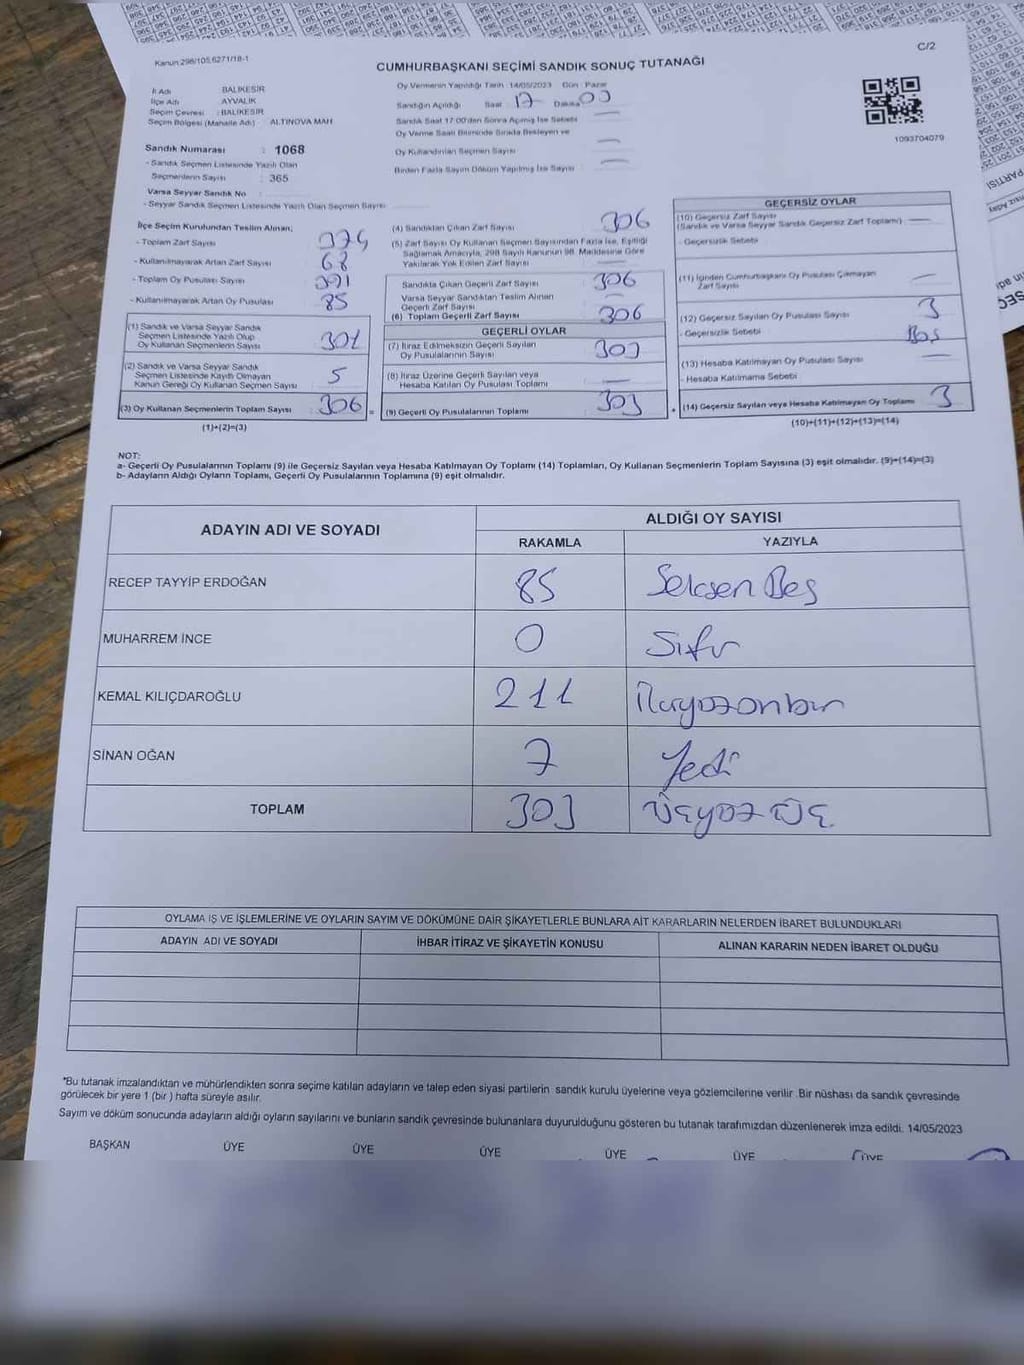 C/2
Kanun 298/105,6271/18-1
CUMHURBAŞKANI SEÇİMİ SANDIK SONUÇ TUTANAĞI
İl Adı : BALIKESİR
İlçe Adı : AYVALIK
Seçim Çevresi : BALIKESİR
Seçim Bölgesi (Mahalle Adı) : ALTINOVA MAH.
Oy Vermenin Yapıldığı Tarih : 14/05/2023 Gün : Pazar
Sandığın Açıldığı Saat : 17 Dakika 03
Sandık Saat 17:00'den Sonra Açılmış İse Sebebi
Oy Verme Saati Bitiminde Sırada Bekleyen ve
Oy Kullandırılan Seçmen Sayısı
Birden Fazla Sayım Döküm Yapılmış İse Sayısı
1093704079
Sandık Numarası : 1068
- Sandık Seçmen Listesinde Yazılı Olan
Seçmenlerin Sayısı : 365
Varsa Seyyar Sandık No
- Seyyar Sandık Seçmen Listesinde Yazılı Olan Seçmen Sayısı
İlçe Seçim Kurulundan Teslim Alınan;
- Toplam Zarf Sayısı
- Kullanılmayarak Artan Zarf Sayısı 68
- Toplam Oy Pusulası Sayısı
- Kullanılmayarak Artan Oy Pusulası 85
(1) Sandık ve Varsa Seyyar Sandık
Seçmen Listesinde Yazılı Olup
Oy Kullanan Seçmenlerin Sayısı 301
(2) Sandık ve Varsa Seyyar Sandık
Seçmen Listesinde Kayıtlı Olmayan
Kanun Gereği Oy Kullanan Seçmen Sayısı 5
(3) Oy Kullanan Seçmenlerin Toplam Sayısı 306 =
(1)+(2)=(3)
(4) Sandıktan Çıkan Zarf Sayısı 306
(5) Zarf Sayısı Oy Kullanan Seçmen Sayısından Fazla İse, Eşitliği
Sağlamak Amacıyla, 298 Sayılı Kanunun 98. Maddesine Göre
Yakılarak Yok Edilen Zarf Sayısı
Sandıkta Çıkan Geçerli Zarf Sayısı 306
Varsa Seyyar Sandıktan Teslim Alınan
Geçerli Zarf Sayısı
(6) Toplam Geçerli Zarf Sayısı 306
GEÇERLİ OYLAR
(7) İtiraz Edilmeksizin Geçerli Sayılan
Oy Pusulalarının Sayısı 303
(8) İtiraz Üzerine Geçerli Sayılan veya
Hesaba Katılan Oy Pusulası Toplamı
(9) Geçerli Oy Pusulalarının Toplamı 303 +
GEÇERSİZ OYLAR
(10) Geçersiz Zarf Sayısı
(Sandık ve Varsa Seyyar Sandık Geçersiz Zarf Toplamı)
- Geçersizlik Sebebi
(11) İçinden Cumhurbaşkanı Oy Pusulası Çıkmayan
Zarf Sayısı
(12) Geçersiz Sayılan Oy Pusulası Sayısı 3
- Geçersizlik Sebebi Boş
(13) Hesaba Katılmayan Oy Pusulası Sayısı
- Hesaba Katılmama Sebebi
(14) Geçersiz Sayılan veya Hesaba Katılmayan Oy Toplamı 3
(10)+(11)+(12)+(13)=(14)
NOT:
a- Geçerli Oy Pusulalarının Toplamı (9) ile Geçersiz Sayılan veya Hesaba Katılmayan Oy Toplamı (14) Toplamları, Oy Kullanan Seçmenlerin Toplam Sayısına (3) eşit olmalıdır. (9)+(14)=(3)
b- Adayların Aldığı Oyların Toplamı, Geçerli Oy Pusulalarının Toplamına (9) eşit olmalıdır.
ADAYIN ADI VE SOYADI ALDIĞI OY SAYISI
RAKAMLA YAZIYLA
RECEP TAYYİP ERDOĞAN 85 Seksen Beş
MUHARREM İNCE 0 Sıfır
KEMAL KILIÇDAROĞLU 211 İkiyüzonbir
SİNAN OĞAN 7 Yedi
TOPLAM 303 Üçyüz Üç
OYLAMA İŞ VE İŞLEMLERİNE VE OYLARIN SAYIM VE DÖKÜMÜNE DAİR ŞİKAYETLERLE BUNLARA AİT KARARLARIN NELERDEN İBARET BULUNDUKLARI
ADAYIN ADI VE SOYADI İHBAR İTİRAZ VE ŞİKAYETİN KONUSU ALINAN KARARIN NEDEN İBARET OLDUĞU
*Bu tutanak imzalandıktan ve mühürlendikten sonra seçime katılan adayların ve talep eden siyasi partilerin sandık kurulu üyelerine veya gözlemcilerine verilir. Bir nüshası da sandık çevresinde
görülecek bir yere 1 (bir ) hafta süreyle asılır.
Sayım ve döküm sonucunda adayların aldığı oyların sayılarını ve bunların sandık çevresinde bulunanlara duyurulduğunu gösteren bu tutanak tarafımızdan düzenlenerek imza edildi. 14/05/2023
BAŞKAN ÜYE ÜYE ÜYE ÜYE ÜYE ÜYE